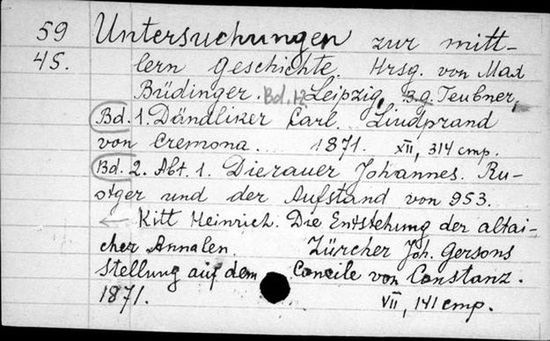 59 Untersuchungen zur mitt-
45. lern Geschichte. Hrsg. von Max
Büdinger. Bd. 1-2 Leipzig, B.g. Teubner,
Bd. 1. Dändliker Carl. Liudprand
von Cremona. 1871. XII, 314 стр.
Bd. 2. Abt. 1. Dierauer Johannes. Ru-
otger und der Aufstand von 953.
Kitt Heinrich. Die Entstehung der altai-
cher Annalen. Zürcher Joh. Gersons
Stellung auf dem Concile von Constanz.
1871. VII, 141 стр.